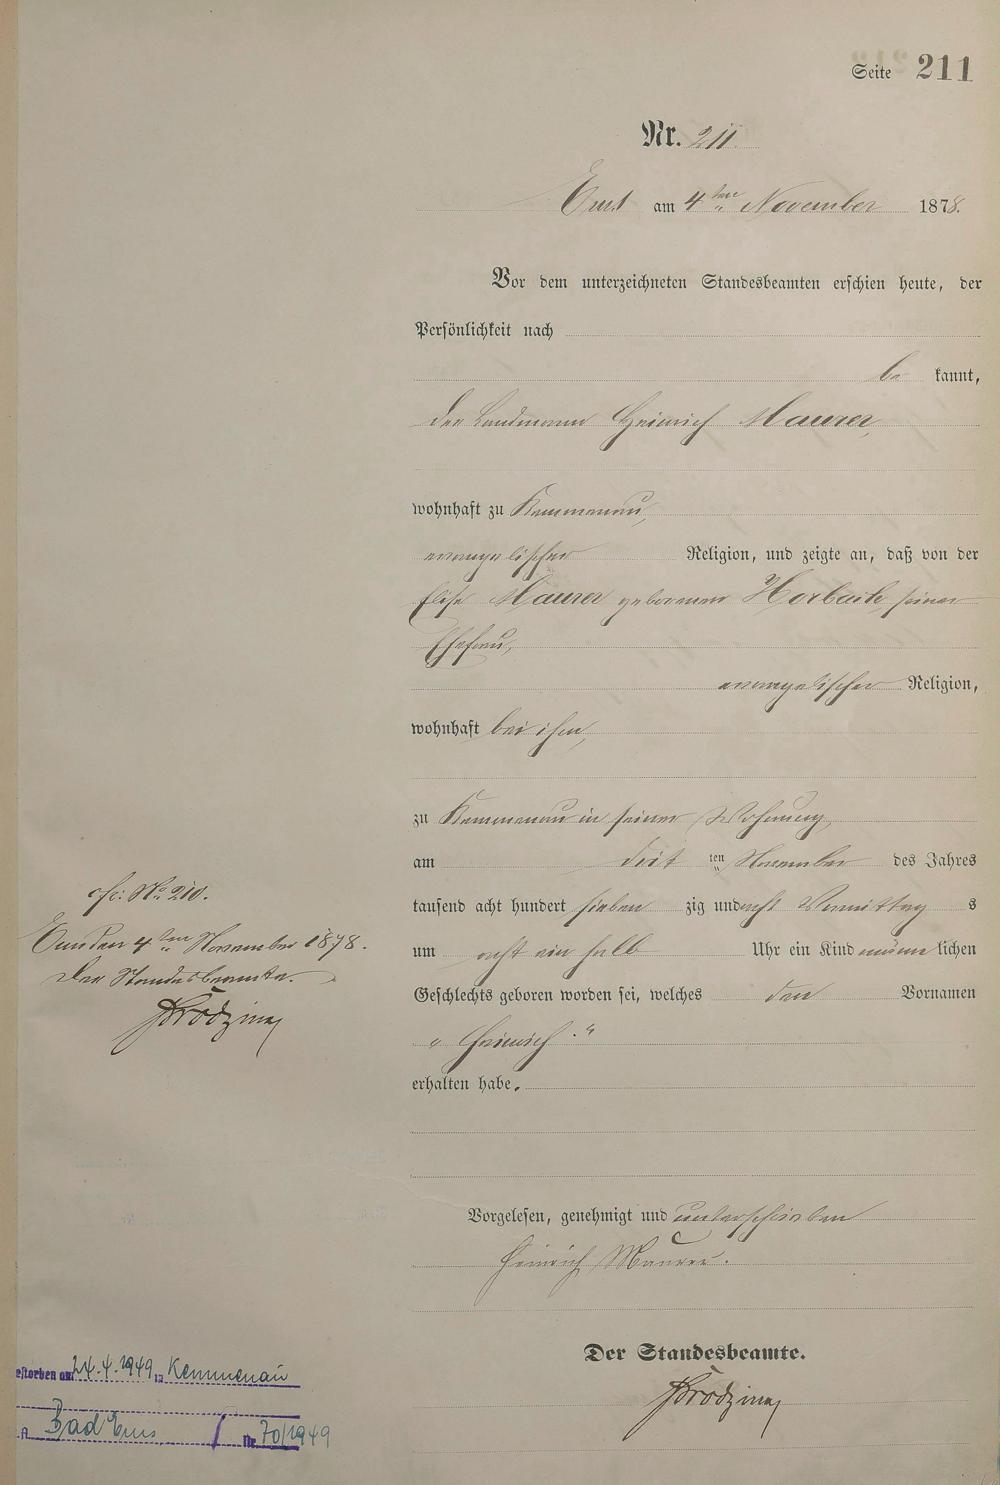 Seite 211
Nr. 211.
Ems am 4ten November 1878.
Vor dem unterzeichneten Standesbeamten erschien heute, der
Persönlichkeit nach
be kannt,
der Landmann Heinrich Maurer,
wohnhaft zu Kemmenau,
evangelischer Religion, und zeigte an, daß von der
Elise Maurer geborenen Horbach, seiner
Ehefrau,
evangelischer Religion,
wohnhaft bei ihm,
zu Kemmenau in seiner Wohnung,
am ten November des Jahres
tausend acht hundert sieben zig und acht Vormittag s
um acht ein halb Uhr ein Kind männ lichen
Geschlechts geboren worden sei, welches den Vornamen
„Heinrich“
erhalten habe.
Vorgelesen, genehmigt und unterschrieben
Heinrich Maurer.
Der Standesbeamte.
cfr: No 210.
Ems den 4ten November 1878.
Der Standesbeamte.
estorben am 24.4.1949 in Kemmenau
.A. Bad Ems, Nr. 70/1949